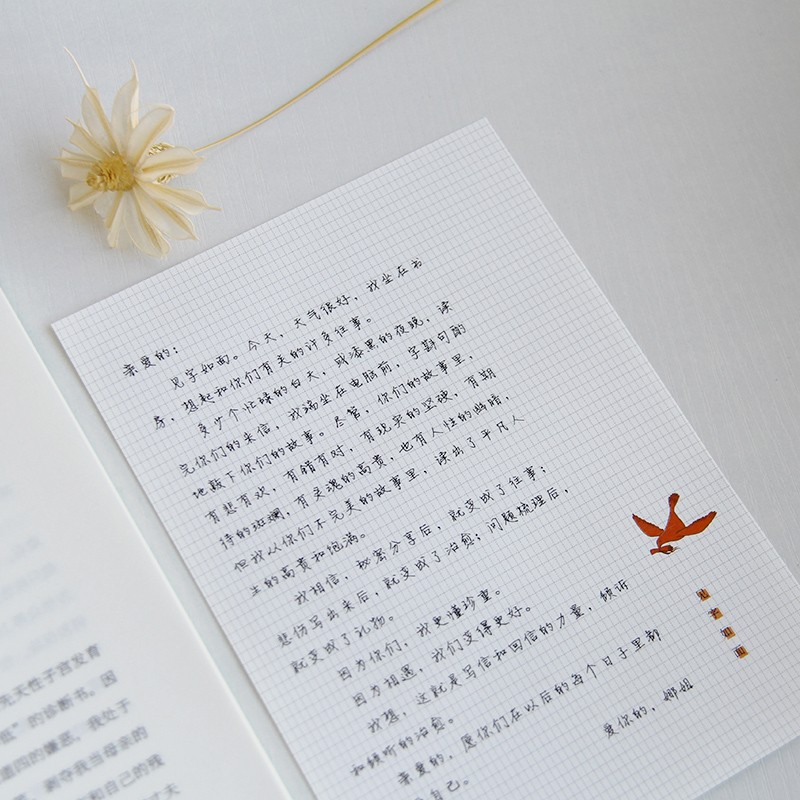 亲爱的：
见字如面。今天，天气很好，我坐在书
房，想起和你们有关的许多往事。
多少个忙碌的白天，或漆黑的夜晚，读
完你们的来信，我端坐在电脑前，字斟句酌
地敲下你们的故事。尽管，你们的故事里，
有悲有欢，有错有对，有现实的坚硬，有期
待的斑斓，有灵魂的高贵，也有人性的幽暗，
但我从你们不完美的故事里，读出了平凡人
生的高贵和饱满。
我相信，秘密分享后，就变成了往事；
悲伤写出来后，就变成了治愈；问题梳理后，
就变成了礼物。
因为你们，我更懂珍重。
因为相遇，我们变得更好。
我想，这就是写信和回信的力量，倾诉
和倾听的治愈。
亲爱的，愿你们在以后的每个日子里都
自己。
爱你的，娜姐
如面
先天性子宫发育
”的诊断书。因
我处于
剥夺我当母亲的
和自己的残
天